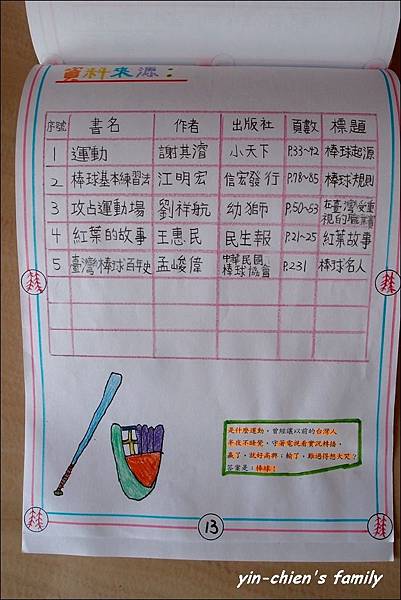 資料來源：
序號 書名 作者 出版社 頁數 標題
1 運動 謝其濬 小天下 P.33~42 棒球起源
2 棒球基本練習法 江明宏 信宏發行 P.78~85 棒球規則
3 攻占運動場 劉祥航 幼獅 P.50~53 在臺灣受重視的
4 紅葉的故事 王惠民 民生報 P.21~25 紅葉故事
5 臺灣棒球百年史 孟峻偉 中華民國棒球協會 P.231 棒球名人
是什麼運動，曾經讓以前的台灣人
半夜不睡覺，守著電視看實況轉播，
贏了，就好高興；輸了，難過得想大哭？
答案是：棒球！
13
yin-chien's family